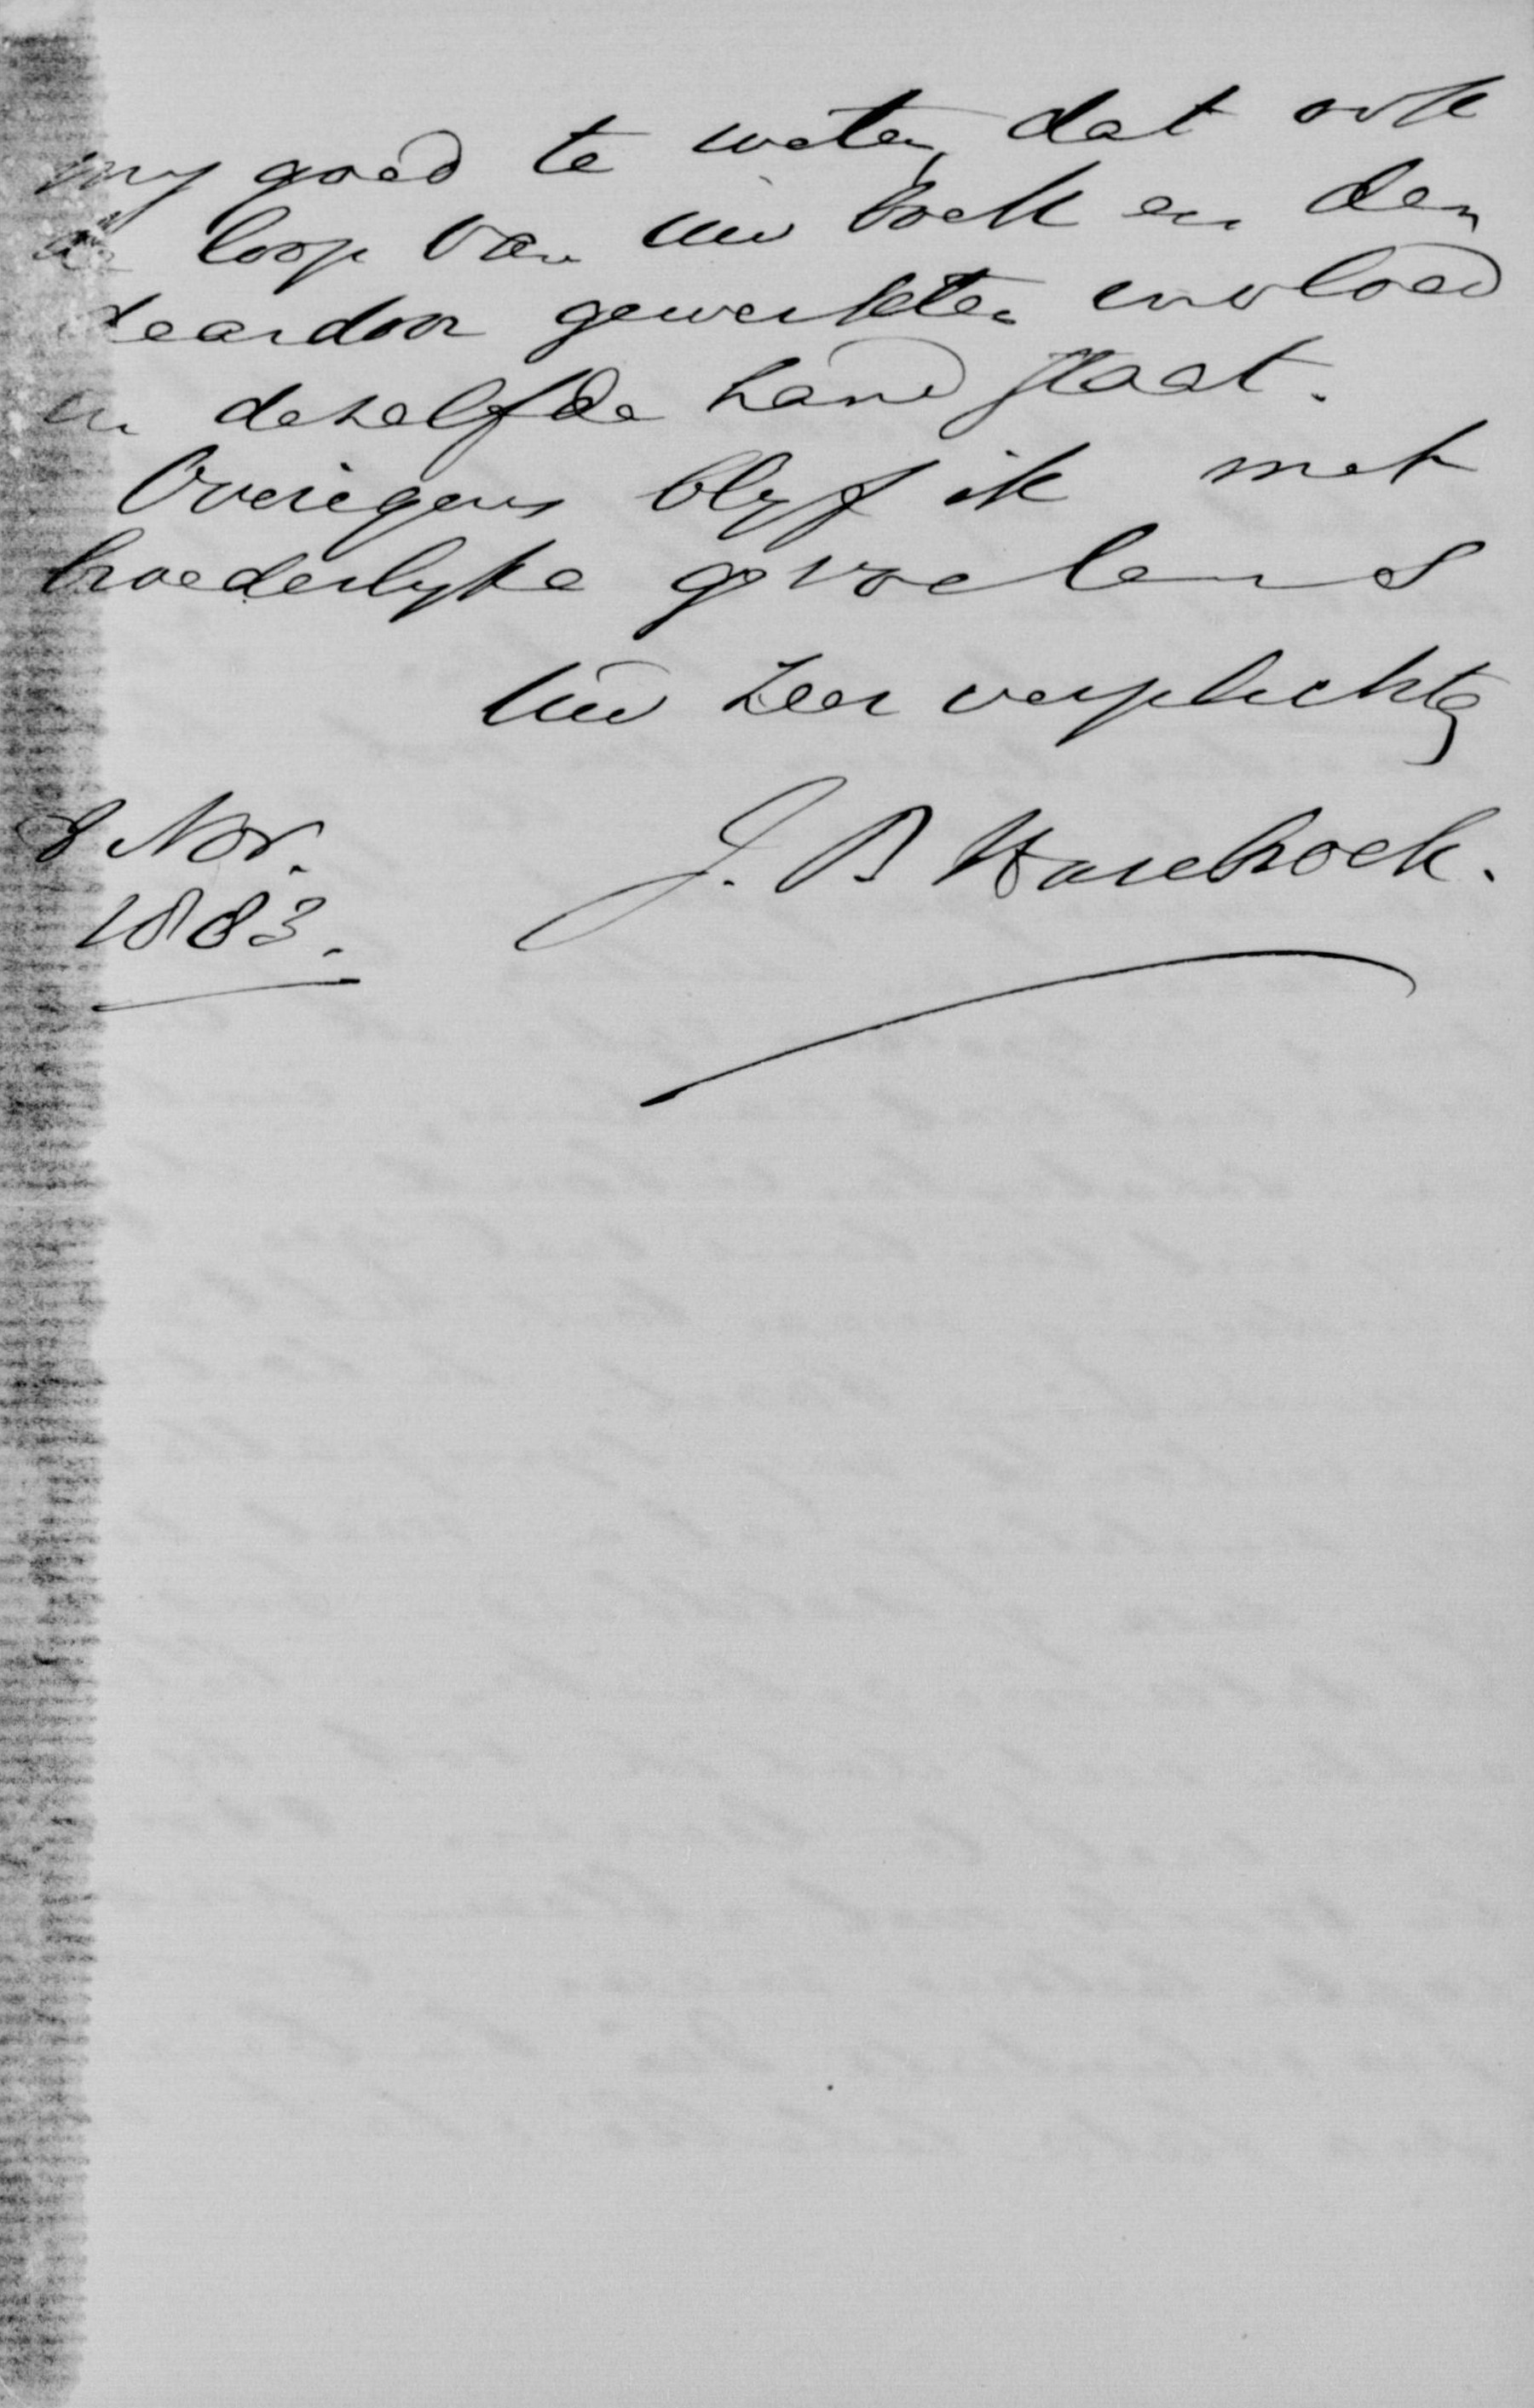 my goed te weten, dat ook
de loop van uw boek en den
daardoor gewerkten invloed
in dezelfde hand staat.
Overigens blyf ik met
broederlyke gevoelens
Uw zeer verplichte
J. B. Hasebroek.
8 Nov.
1883.